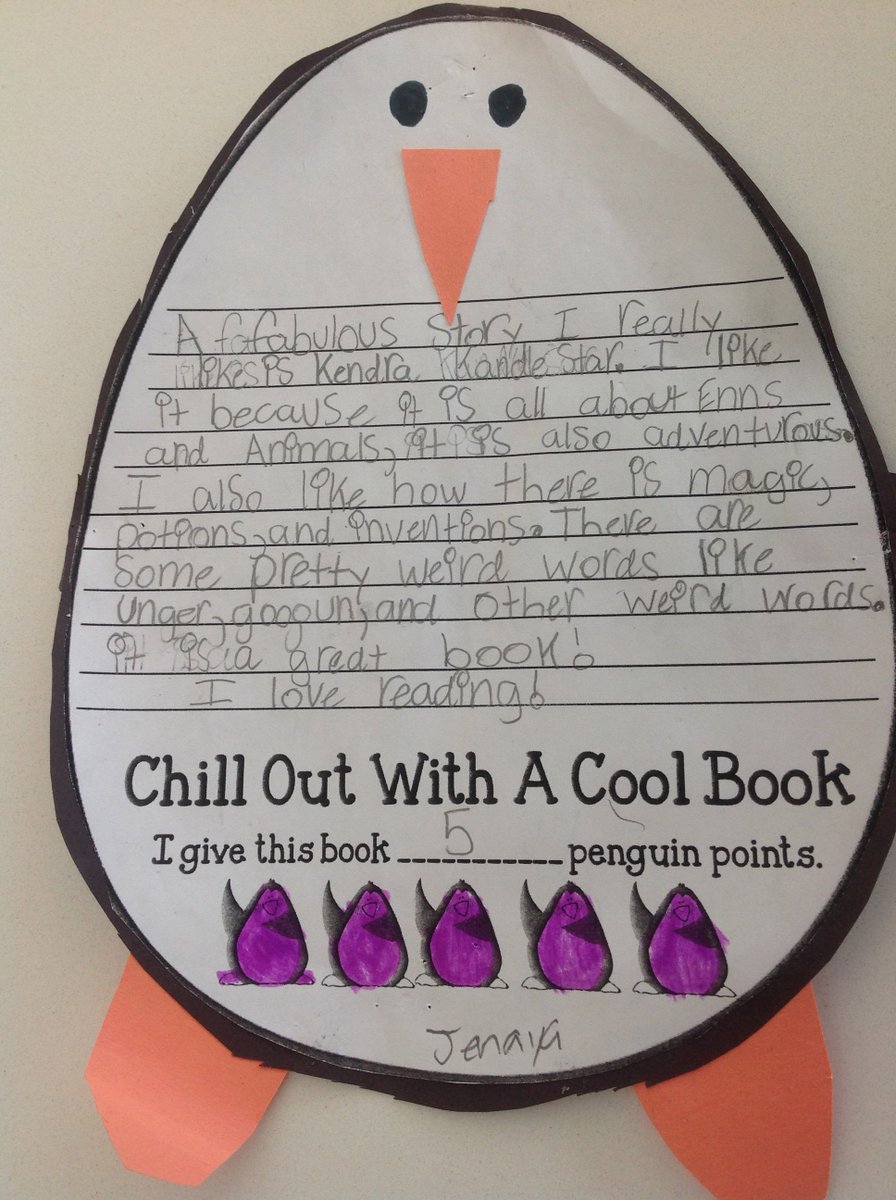 A fafabulous Story I really
likes is Kendra Kandle Star. I like
it because it is all about Enns
and Animals, it is also adventurous.
I also like how there is magic,
potions, and inventions. There are
Some pretty weird words like
Unger, googun, and other weird words.
it is a great book!
I love reading!
Chill Out With A Cool Book
I give this book 5 penguin points.